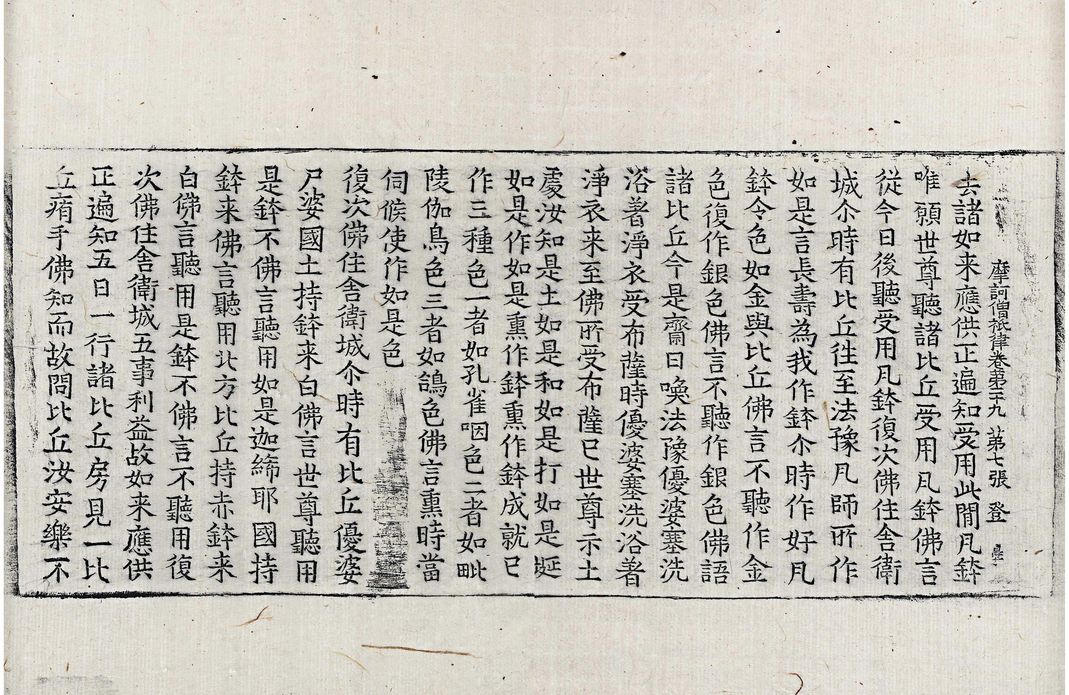 摩訶僧祇律卷第二十九　第七張　登
去諸如来應供正遍知受用此間凡鉢
唯願世尊聽諸比丘受用凡鉢佛言
從今日後聽受用凡鉢復次佛住舍衛
城尒時有比丘徃至法豫凡師所作
如是言長壽為我作鉢尒時作好凡
鉢令色如金與比丘佛言不聽作金
色復作銀色佛言不聽作銀色佛語
諸比丘今是齋日喚法豫優婆塞洗
浴著淨衣受布薩時優婆塞洗浴著
淨衣来至佛所受布薩已世尊示土
處汝知是土如是和如是打如是埏
如是作如是熏作鉢熏作鉢成就已
作三種色一者如孔雀咽色二者如毗
陵伽鳥色三者如鴿色佛言熏時當
伺候使作如是色
復次佛住舍衛城尒時有比丘優婆
尸婆國土持鉢来白佛言世尊聽用
是鉢不佛言聽用如是迦締耶國持
鉢来佛言聽用北方比丘持赤鉢来
白佛言聽用是鉢不佛言不聽用復
次佛住舍衛城五事利益故如来應供
正遍知五日一行諸比丘房見一比
丘痟手佛知而故問比丘汝安樂不